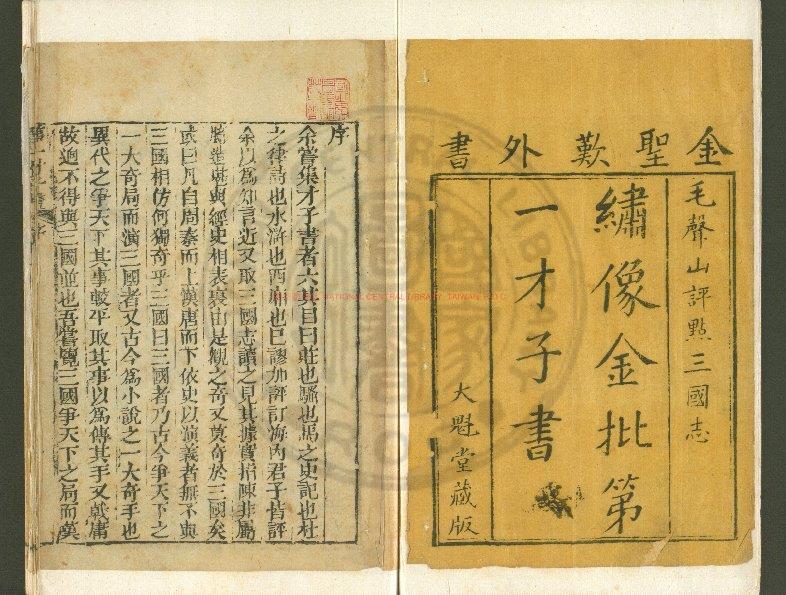 金聖歎外書
毛聲山評點三國志
繡像金批第
一才子書
大魁堂藏版
序
余嘗集才子書者六其目曰莊也騷也馬之史記也杜
之律詩也水滸也西廂也已謬加評訂海內君子皆許
余以為知言近又取三國志讀之見其據實指陳非屬
臆造堪與經史相表裏由是觀之奇又莫奇於三國矣
或曰凡自周秦而上漢唐而下依史以演義者無不與
三國相仿何獨奇乎三國曰三國者乃古今爭天下之
一大奇局而演三國者又古今為小說之一大奇手也
異代之爭天下其事較平取其事以為傳其手又較庸
故迥不得與三國並也吾嘗覽三國爭天下之局而嘆
NATIONAL CENTRAL LIBRARY, TAIWAN, R.O.C